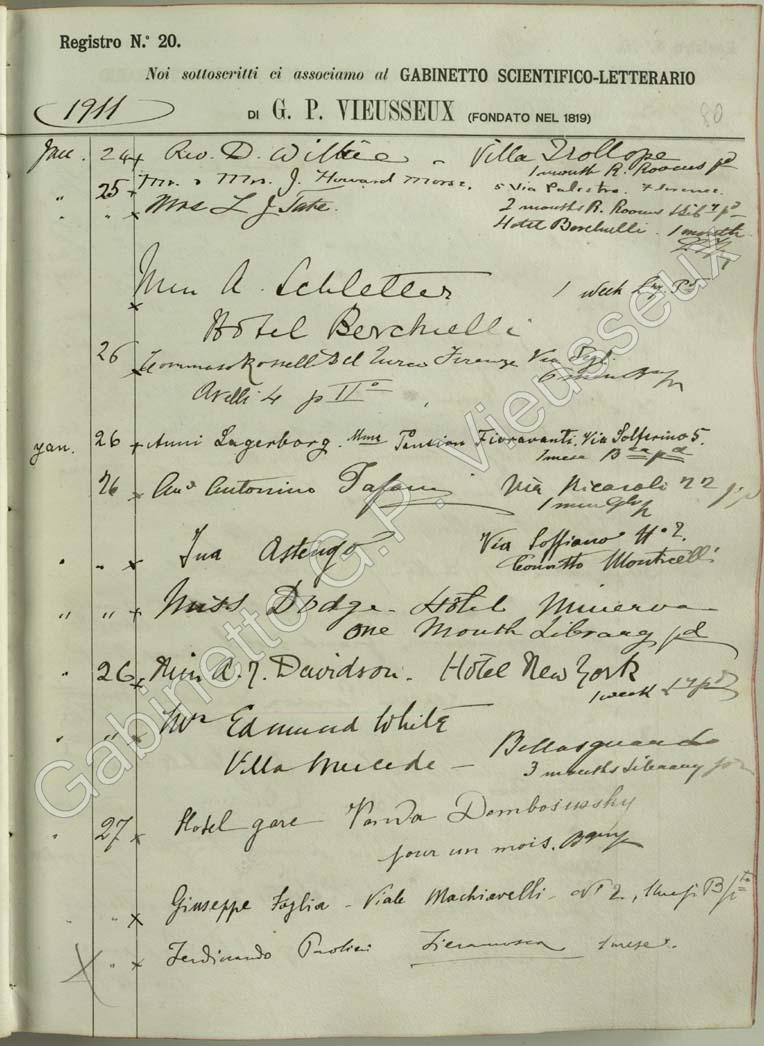 Registro N.° 20.
Noi sottoscritti ci associamo al GABINETTO SCIENTIFICO-LETTERARIO
1911
DI G. P. VIEUSSEUX (FONDATO NEL 1819)
80
Jan. 24 + Rev. D. Wilkie - Villa Trollope
1 month R. Rooms pd
" 25 Mr. & Mrs. J. Howard Morse. 5 Via Palestro. Florence.
" " Mrs L J Tate. 2 months R. Rooms & Liby pd
Hotel Berchielli. 1 month
Miss A. Schletter 1 week Pd
x
Hôtel Berchielli
26 Tommaso Rosselli Del Turco Firenze Via
4 p IIo
Jan. 26 + Anni Lagerborg. Mme Pension Fioravanti. Via Solferino 5.
1 mese pd
26 x Antonino Via Ricasoli 22
1
" " x Ina Astengo Via Soffiano No 2.
Monticelli
" " + Miss Dodge - Hôtel Minerva
One Month Library pd
" 26 + Miss A. Davidson. Hotel New York
1 week pd
" " x Mr Edmund White
Villa - Bellosguardo
3 months Library
" 27 x Hotel gare Vanda
pour un mois.
" x Giuseppe Foglia - Viale Machiavelli - No 2,
X " x Ferdinando Paolieri Fieramosca 1 mese
Gabinetto G.P. Vieusseux